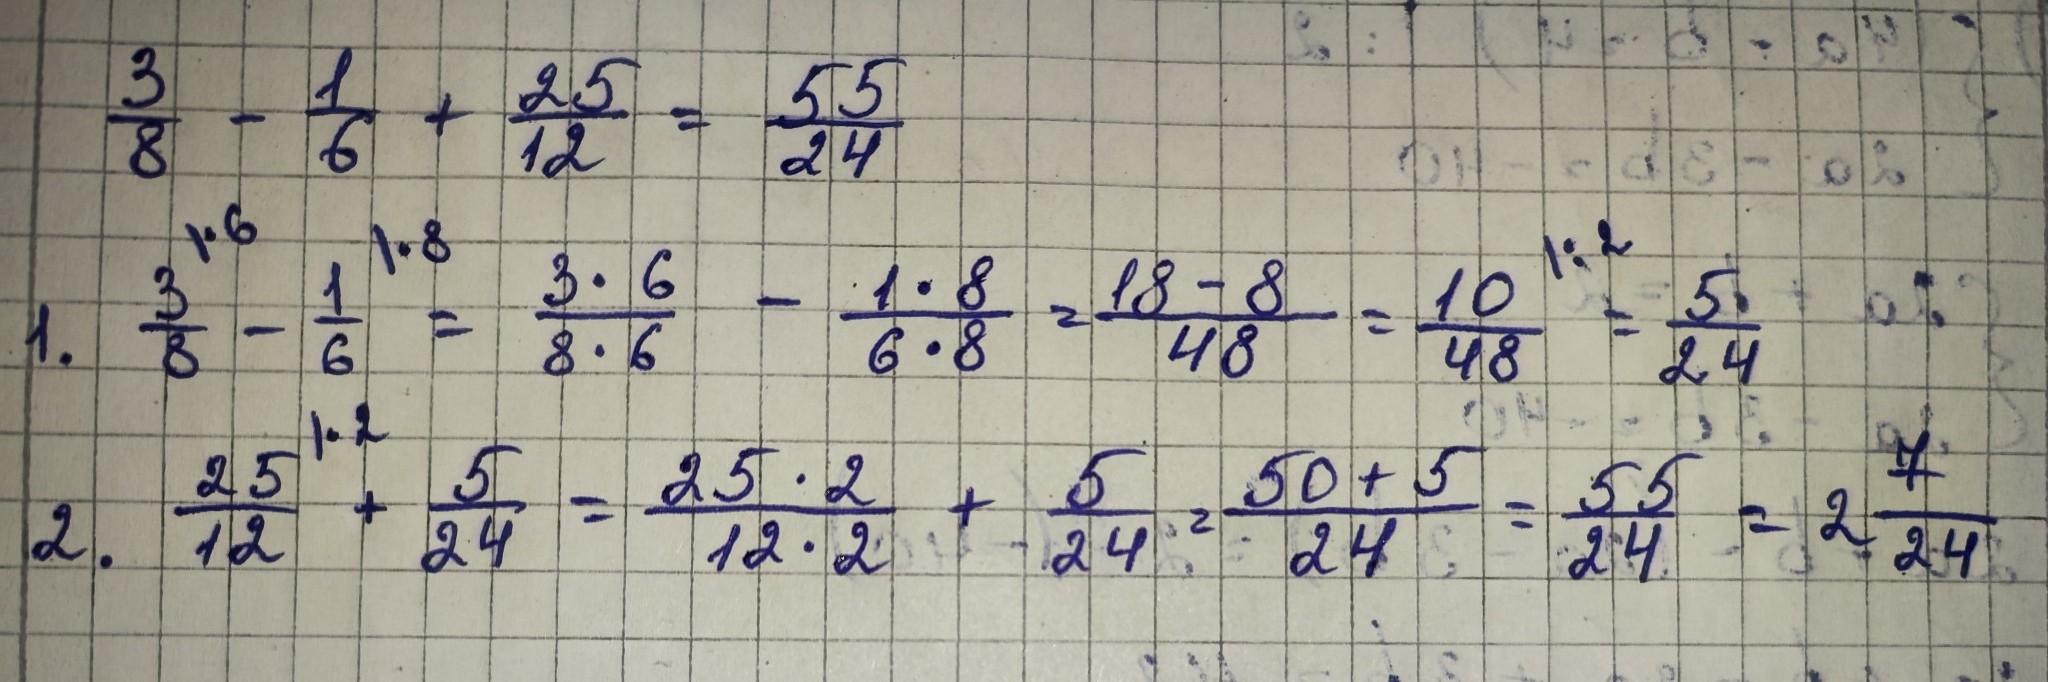 3/8 - 1/6 + 25/12 = 55/24
1. 3/8 |·6 - 1/6 |·8 = 3·6/8·6 - 1·8/6·8 = 18-8/48 = 10/48 |:2 = 5/24
2. 25/12 |·2 + 5/24 = 25·2/12·2 + 5/24 = 50+5/24 = 55/24 = 2 7/24